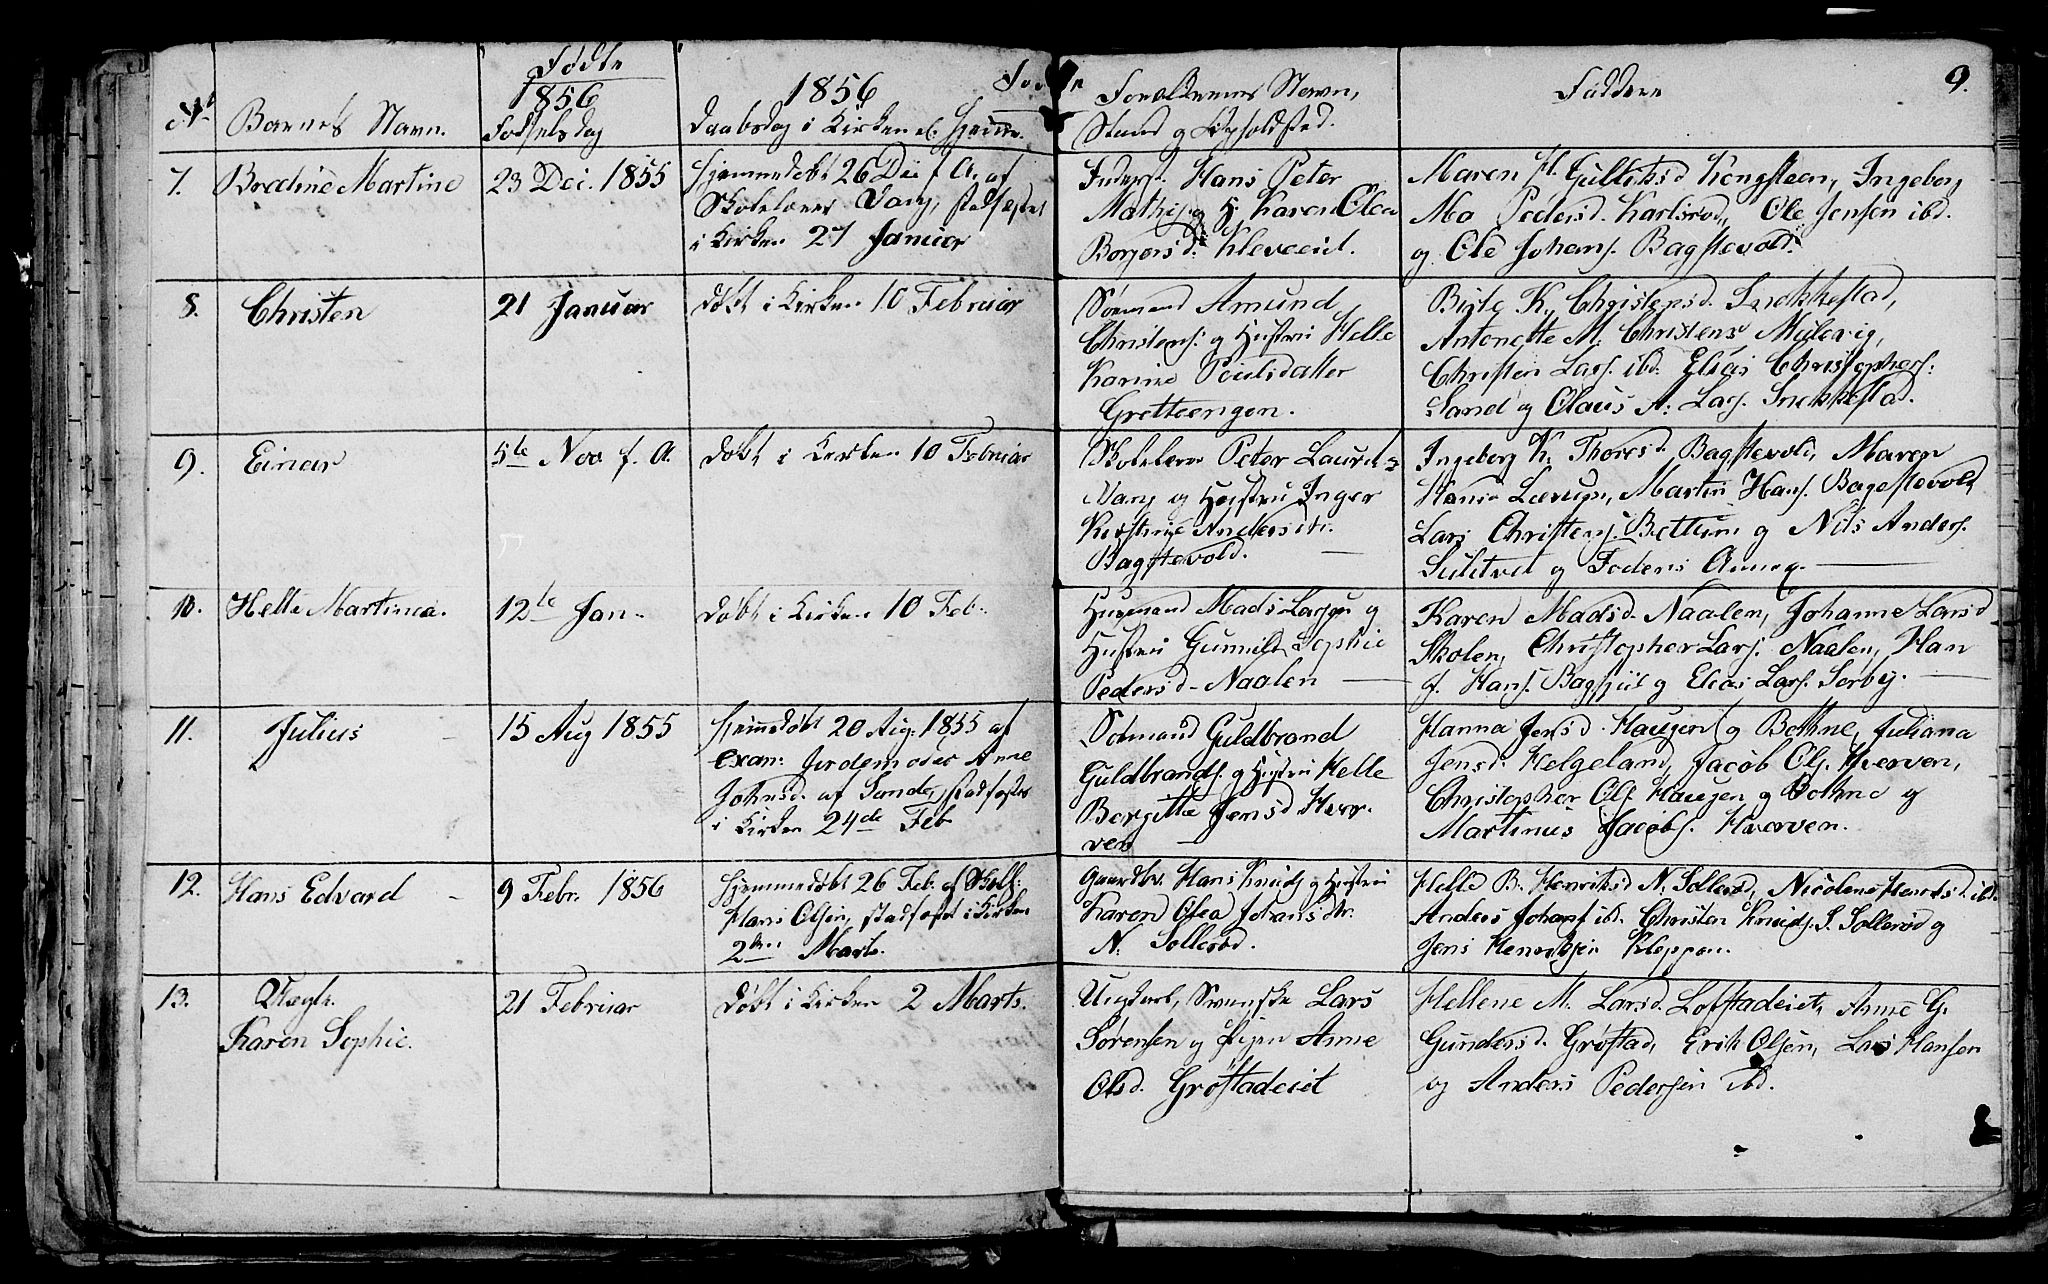 Fødte
1856
1856
Fod
9.
No
Barnets Navn.
Fødselsdag
Daabsdag i Kirken el. Hjem̄e.
Forældrenes Navn,
Stand og Opholdsted.
Faddere
7.
Bredine Martine
23 Dec. 1855
Hjemmedøbt 26 Dec f. A. af
Skolelærer Vang, stadfæstet
i Kirken 27 Januar
Inderst. Hans Peter
Mathis. og H. Karen Olea
Borgersd. Kleveeid.
Maren H. Gulliksd Kongsteen, Ingeborg
Ma Pedersd. Karlsrød, Ole Jensen ibd.
og Ole Johans. Bagstevold.
8.
Christen
21 Januar
døbt i Kirken 10 Februar
Sømand Amund
Christens. og Hustru Helle
Karine Poulsdatter
Gretteengen.
Birte K. Christensd. Snekkestad,
Antonette M. Christens Mulevig,
Christen Lars. ibd. Elias Christophers.
Sand og Olaus A. Lars. Snekkestad.
9.
Einar
5te Nov f. A.
døbt i Kirken 10 Februar
Skolelærer Peter Laurits
Vang og Hustru Inger
Kirstine Andersdtr.
Bagstevold.
Ingeborg K. Thoresd Bagstevold, Maren
Lars Christens. Bettum og Nils Anders.
10.
Helle Martinea.
12te Jan.
døbt i Kirken 10 Feb.
Husmand Mads Larsen og
Hustru Gunnild Sophie
Pedersd. Naalen
Karen Madsd. Naalen, Johanne Larsd
Skolen, Christopher Lars. Naalen, Han
s. Hans. og Elias Lars. Sørby.
11.
Julius
15 Aug 1855
Hjem̄edøbt 20 Aug. 1855 af
exan: Jordemoder Anne
Johnsd. af Sande, stadfæstet
i Kirken 24de Feb
Sømand Guldbrand
Guldbrands. og Hustru Helle
Borgitte Jensd Hvær-
ven
Hanna Jensd. Haugen og Bothne, Juliana
Jensd. Helgeland, Jacob Ols. Hverven,
Christopher Ols Haugen og Bothne og
Martinus Jacobs. Hværven.
12.
Hans Edvard
9 Febr. 1856
Hjemmedøbt 26 Feb. af Skoll:
Hans Olsen, stadfæst i Kirken
2den Marts.
Gaardbr. Hans Knuds og Hustru
Karen Olea Johansdtr.
N. Sollerød.
Helle B. Henriksd N. Sollerød, Nicoline Henriksd. ibd.
Anders Johans ibd. Christen Knuds. S. Sollerød og
Jens Henriksen Kleppan.
13.
Uægte.
Karen Sophie.
21 Februar
døbt i Kirken 2 Marts.
Ungkarl, Svenske Lars
Sørensen og Pigen Anne
Olsd. Grøstadeiet
Hellene M. Larsd. Løfstadeiet, Anne G.
Gundersd. Grøstad, Erik Olsen, Lars Hansen
og Anders Pedersen ibd.